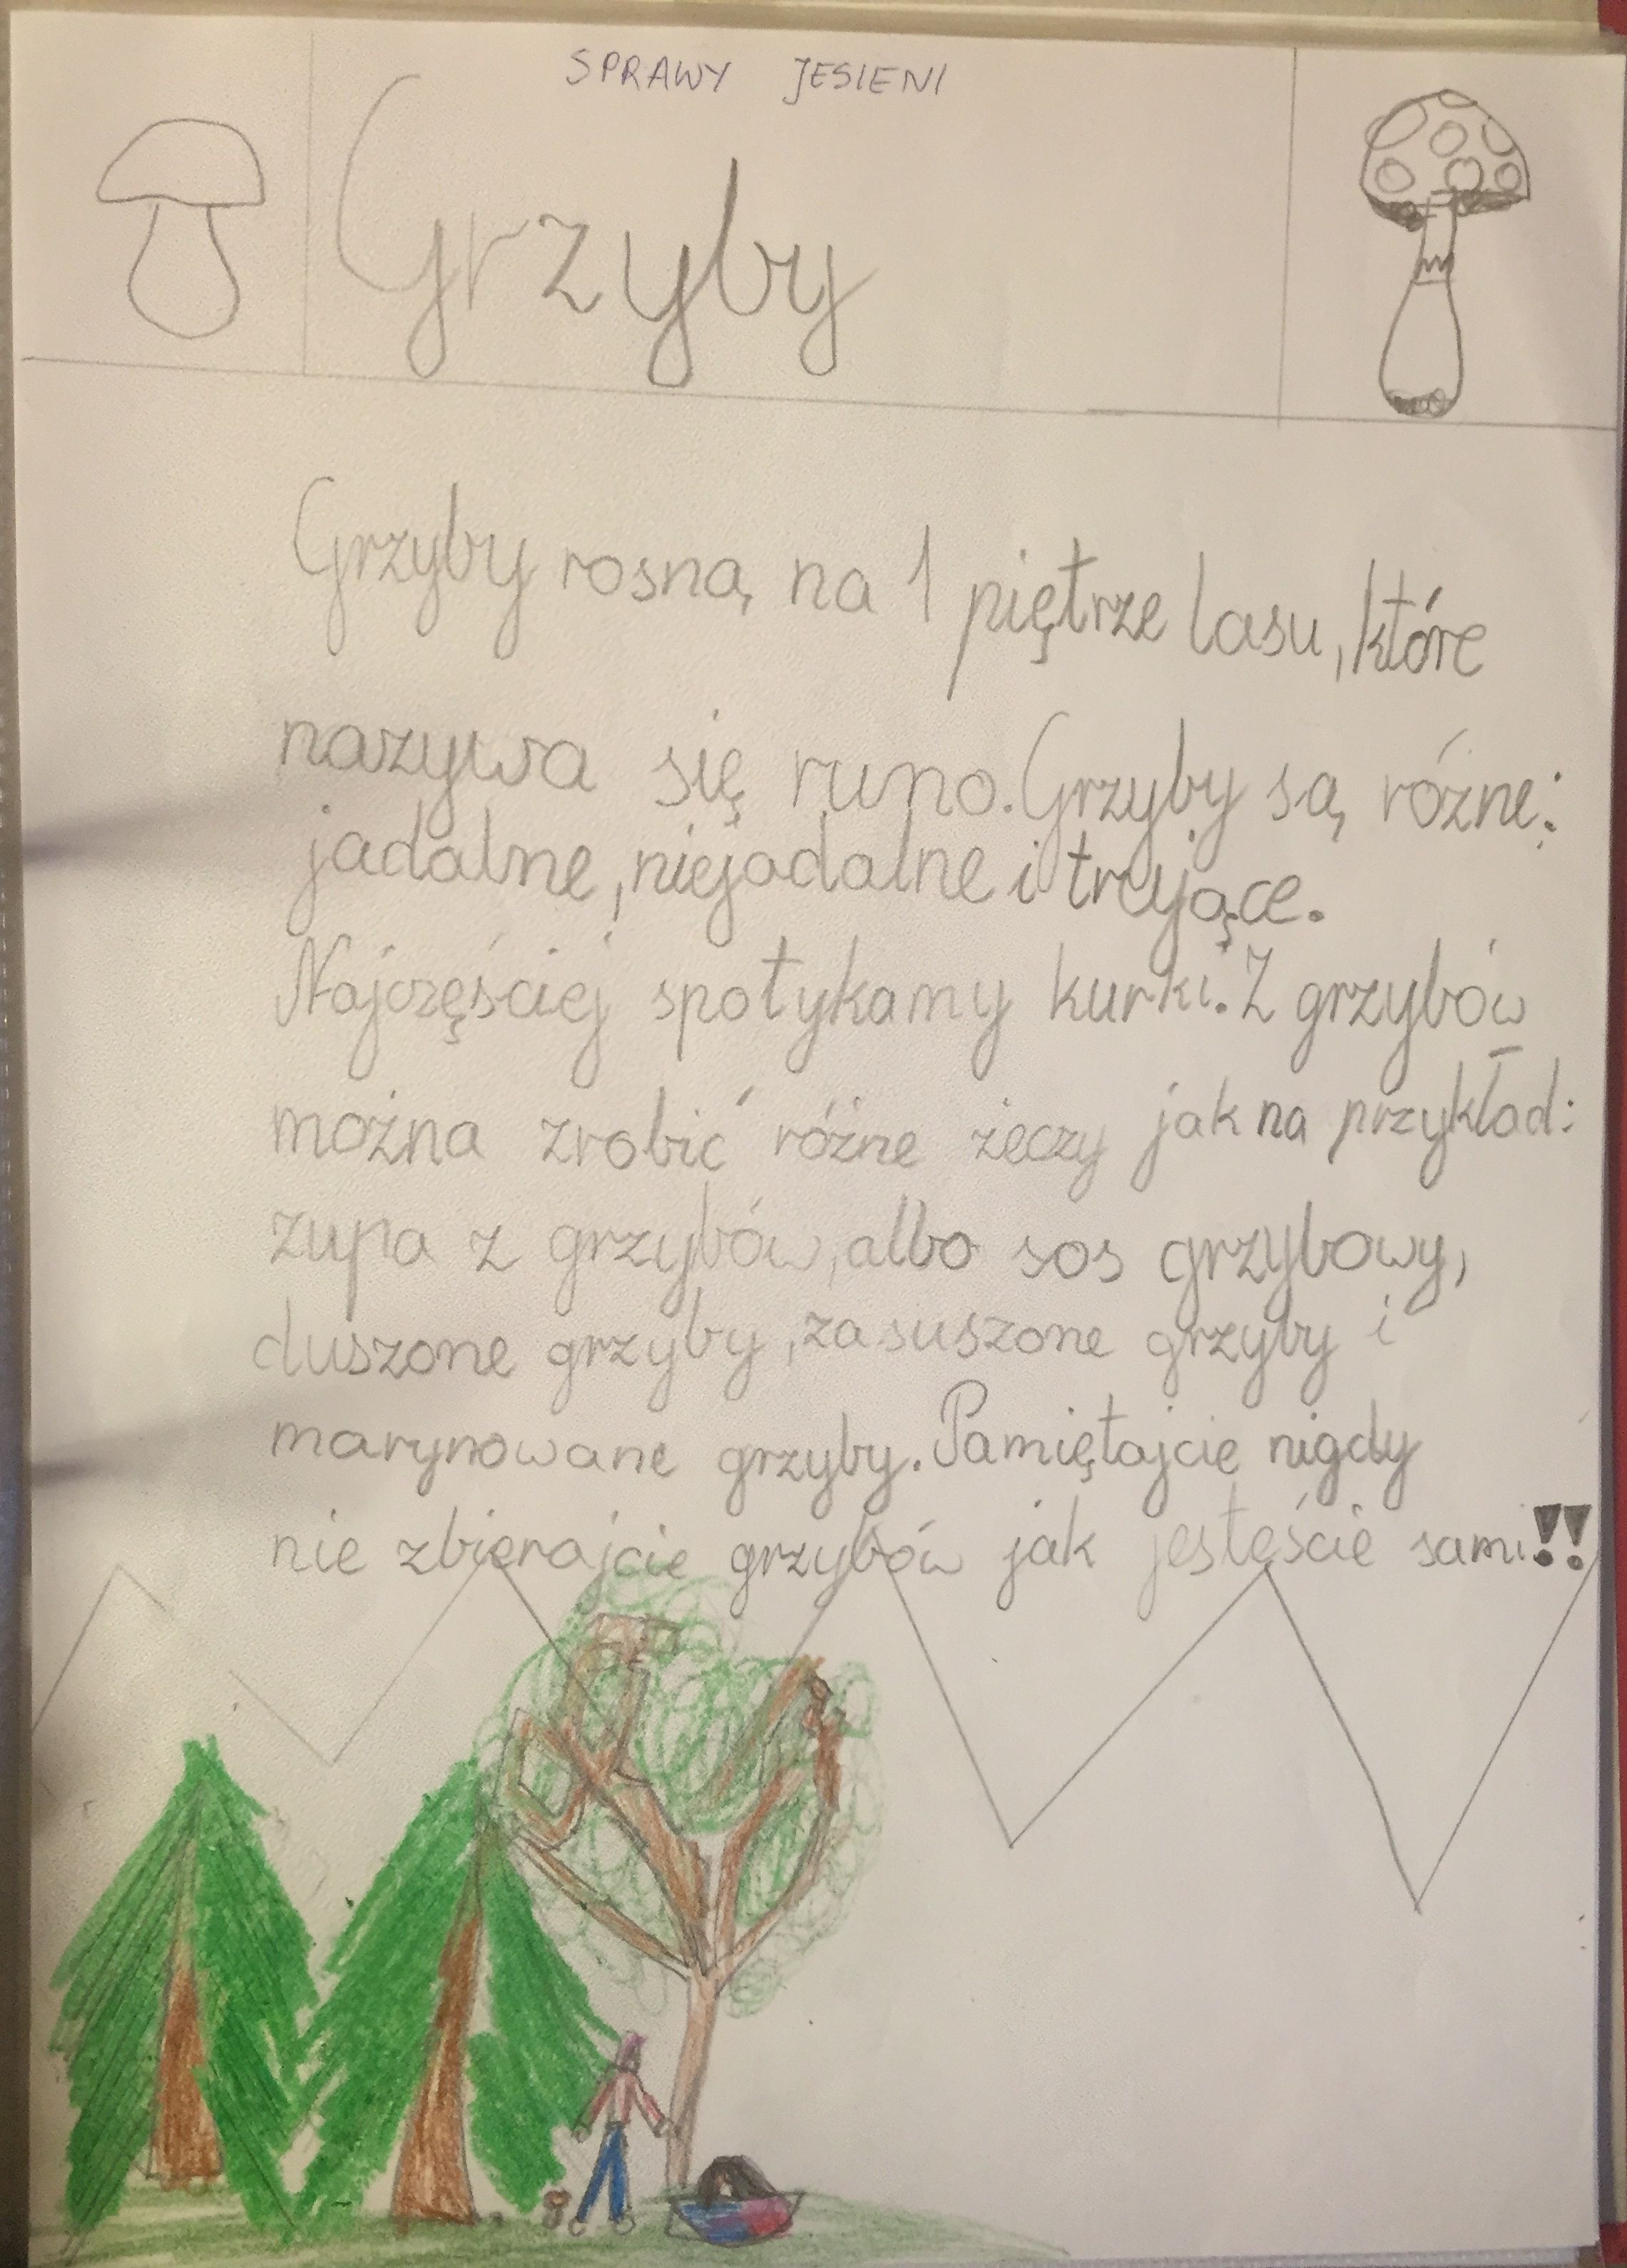 SPRAWY JESIENI
Grzyby
Grzyby rosną na 1 piętrze lasu, które
nazywa się runo. Grzyby są różne:
jadalne, niejadalne i trujące.
Najczęściej spotykamy kurki. Z grzybów
można zrobić różne żeczy jak na przykład:
zupa z grzybów, albo sos grzybowy,
duszone grzyby, zasuszone grzyby i
marynowane grzyby. Pamiętajcie nigdy
nie zbierajcie grzybów jak jesteście sami!!